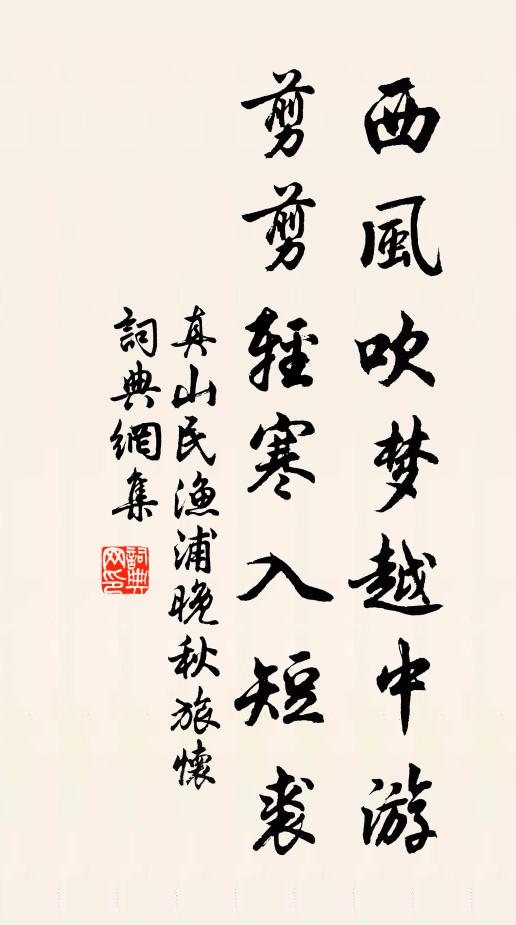 西風吹梦越中游
剪剪輕寒入短裘
真山民漁浦晚秋旅懷
詞典網集
詞典网印